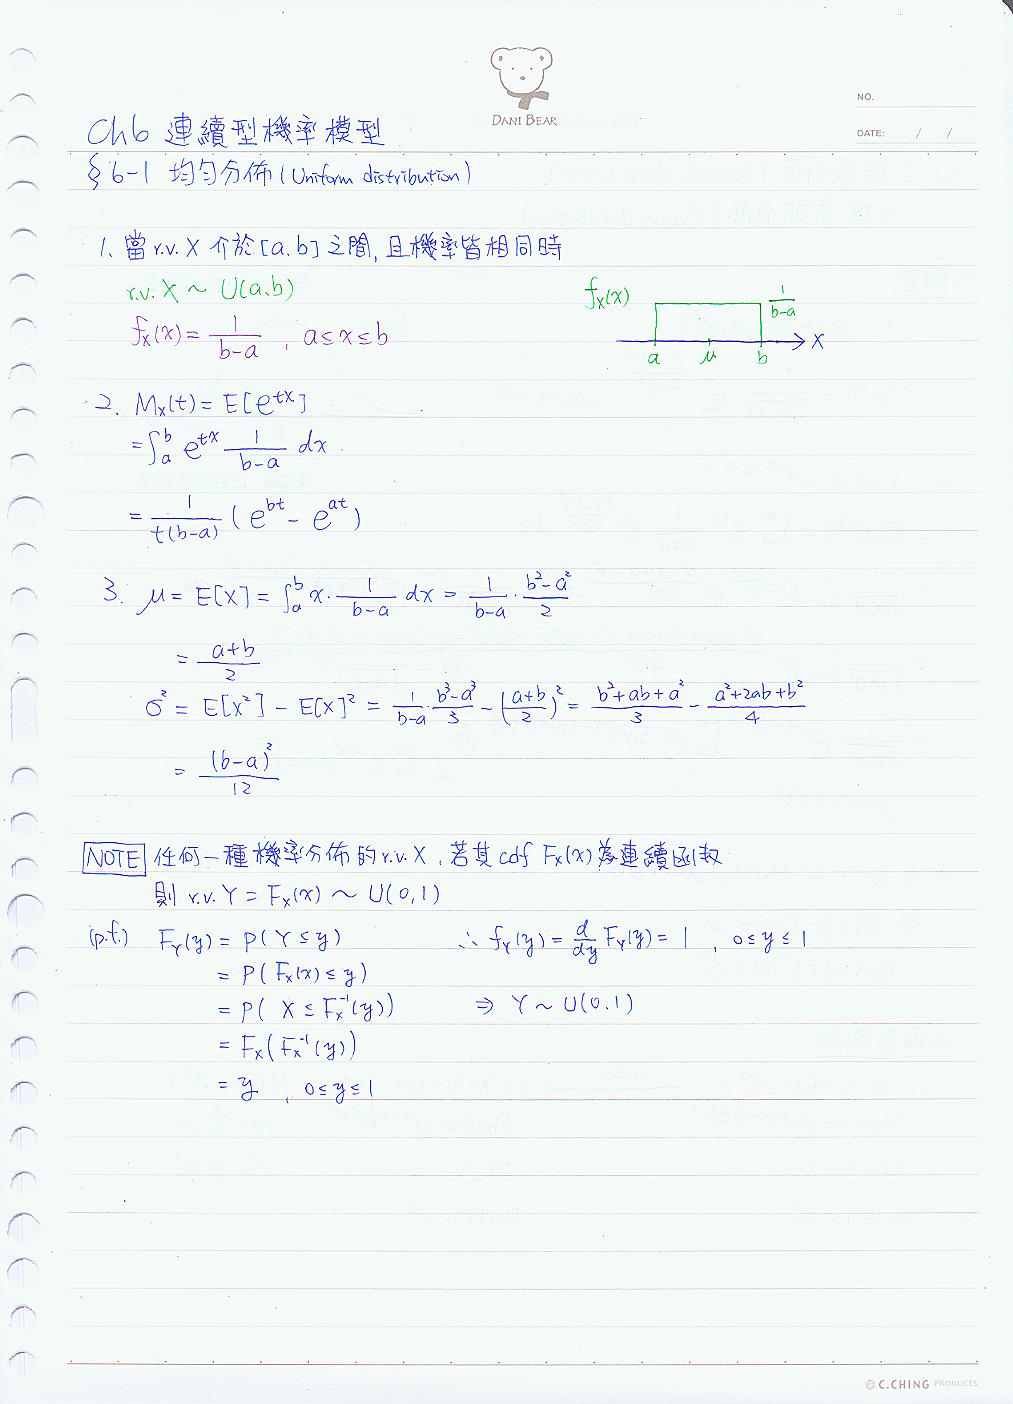 DANI BEAR
NO.
DATE: / /
Ch6 連續型機率模型
§ 6-1 均勻分佈 (Uniform distribution)
1. 當 r.v. X 介於 [a, b] 之間, 且機率皆相同時
r.v. X ~ U(a, b)
f_X(x) = 1/(b-a) , a ≤ x ≤ b
f_X(x) 1/(b-a)
a μ b X
2. M_X(t) = E[e^{tX}]
= ∫_a^b e^{tx} 1/(b-a) dx
= 1/(t(b-a)) (e^{bt} - e^{at})
3. μ = E[X] = ∫_a^b x · 1/(b-a) dx = 1/(b-a) · (b²-a²)/2
= (a+b)/2
σ² = E[X²] - E[X]² = 1/(b-a) · (b³-a³)/3 - ((a+b)/2)² = (b²+ab+a²)/3 - (a²+2ab+b²)/4
= (b-a)²/12
NOTE 任何一種機率分佈的 r.v. X , 若其 cdf F_X(x) 為連續函數
則 r.v. Y = F_X(x) ~ U(0, 1)
(p.f.) F_Y(y) = P(Y ≤ y) ∴ f_Y(y) = d/dy F_Y(y) = 1 , 0 ≤ y ≤ 1
= P(F_X(x) ≤ y)
= P( X ≤ F_X^{-1}(y)) ⇒ Y ~ U(0, 1)
= F_X(F_X^{-1}(y))
= y , 0 ≤ y ≤ 1
© C.CHING PRODUCTS